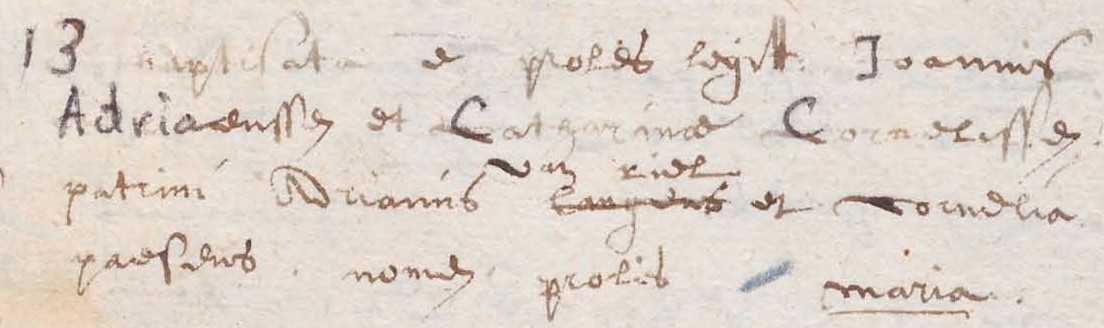 13 baptisata e proles legitt. Joannis
Adriaenssen et Catharinae Cornelissen.
van riel
patrini Adrianus et Cornelia
paesens. nomen prolis maria.